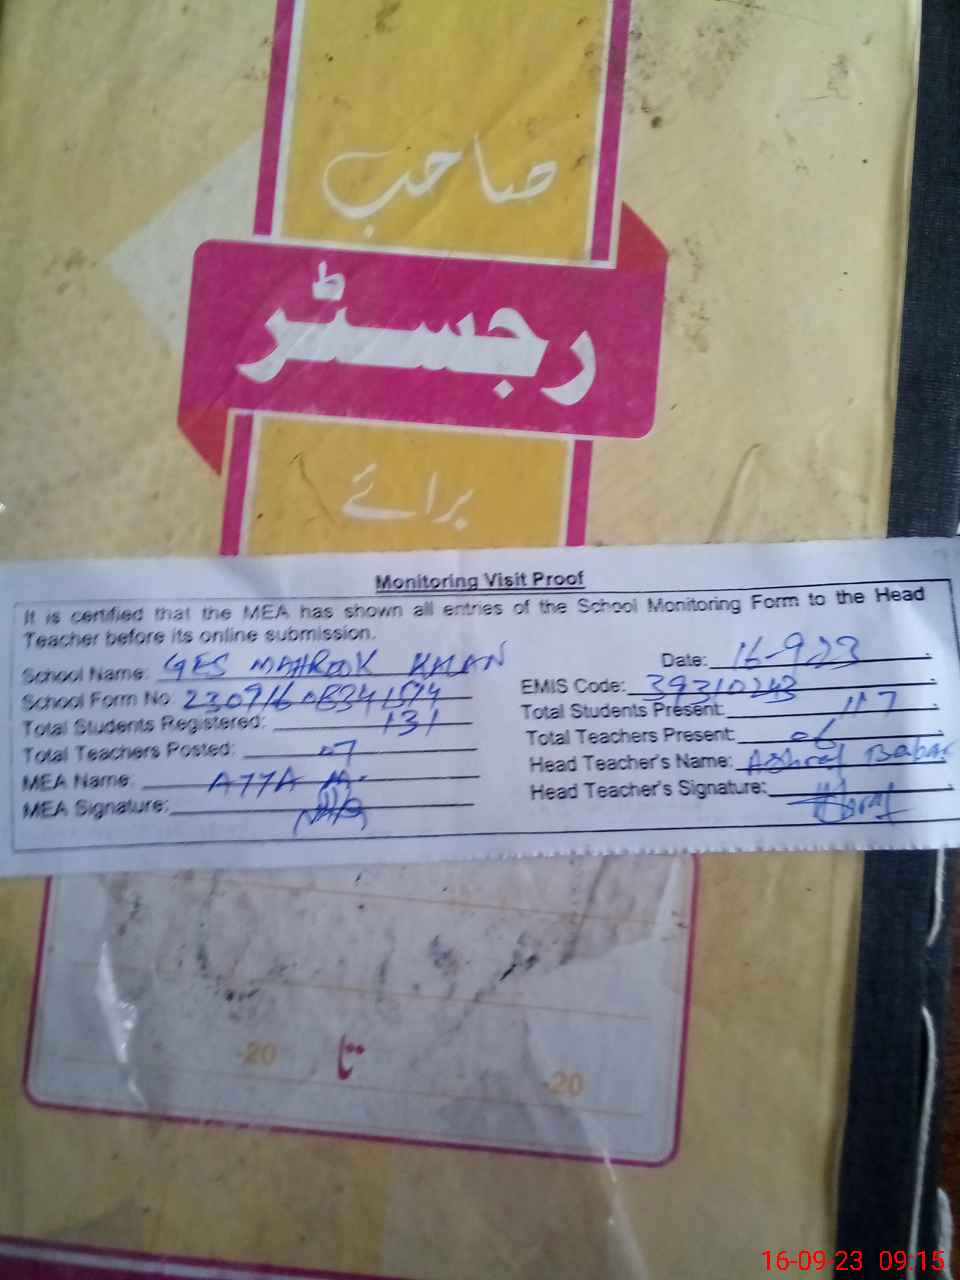 صاحب
رجسٹر
برائے
Monitoring Visit Proof
It is certified that the MEA has shown all entries of the School Monitoring Form to the Head
Teacher before its online submission.
School Name: GES MAHROOK KHAN Date: 16-9-23
School Form No: EMIS Code: 39310243
Total Students Registered: 131 Total Students Present: 117
Total Teachers Posted: 07 Total Teachers Present: 06
MEA Name: ATTA Head Teacher's Name: Ashraf Babar
MEA Signature: Head Teacher's Signature: Ashraf
-20 تا -20
16-09-23 09:15